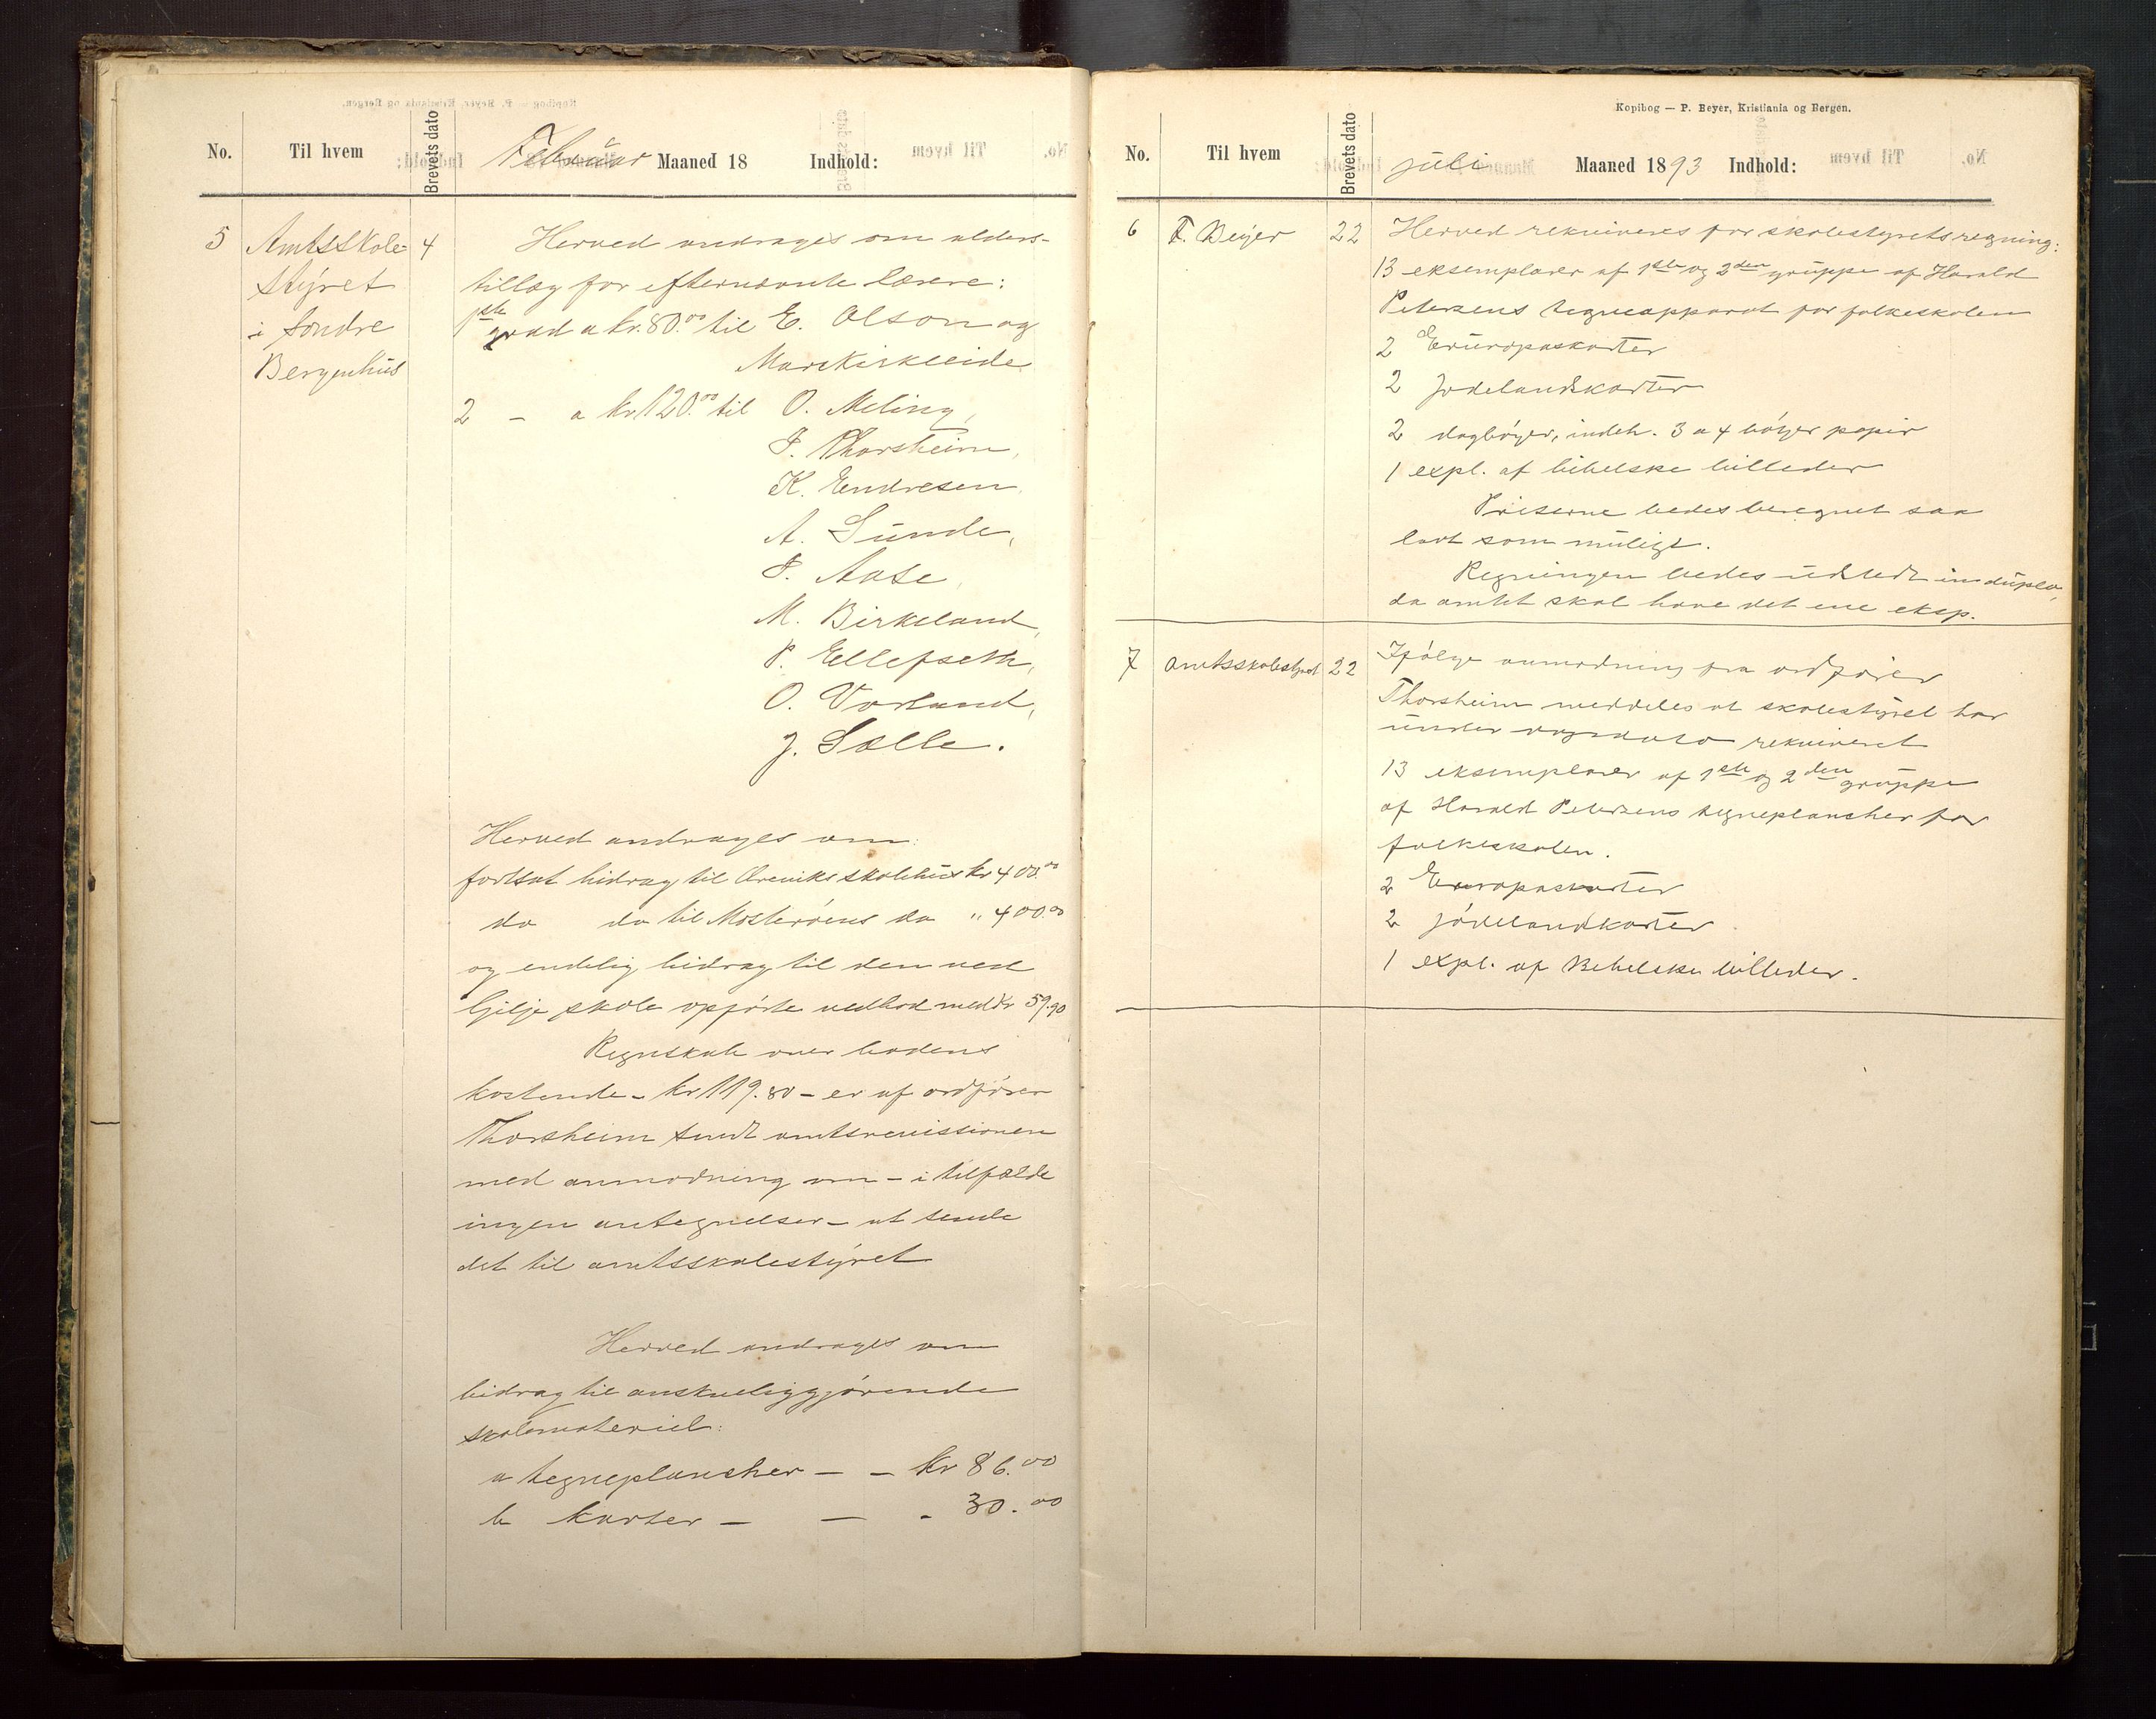 No. Til hvem Brevets dato Februar Maaned 18 Indhold:
5 Amtsskole- 4 Herved andrages om alders-
styret tillæg for efternævnte lærere:
i Søndre 1ste grad a kr. 80.00 til E. Olson og
Bergenhus Mar Kirkleide
2 – a kr 120.00 til O. Meling,
T. Thorsheim,
K. Endresen,
A. Sunde,
T. Aase,
M. Birkeland,
P. Ellefseth,
O. Vorland,
J. Salle.
Herved andrages om:
fortsat bidrag til skolehus kr 400.00
do do til Mosterøens do " 400.00
og endelig bidrag til den ved
Gilje skole opførte vedbod med kr 59.90
Regnskab over bodens
kostende – kr 119.80 – er af ordfører
Thorsheim sendt amtsrevissionen
med anmodning om – i tilfælde
ingen antegnelser – at sende
det til amtsskolestyret
Herved andrages om
bidrag til anskueliggjørende
skolemateriel:
a tegneplancher – – kr 86.00
b karter – – - 30.00
Kopibog — P. Beyer, Kristiania og Bergen.
No. Til hvem Brevets dato juli Maaned 1893 Indhold:
6 F. Beyer 22 Herved rekvireres for skolestyrets regning:
13 eksemplarer af 1ste og 2den gruppe af Harald
Petersens tegneapparat for folkeskolen
2 Europaskarter
2 Jødelandskarter
2 dagbøger, indeh. 3 a 4 bøger papir
1 expl. af bibelske billeder
Priserne bedes beregnet saa
lavt som muligt.
Regningen bedes udstedt in duplo,
da amtet skal have det ene eksp.
7 Amtsskolestyret 22 Ifølge anmodning fra ordfører
Thorsheim meddeles at skolestyret har
under dagsdato rekvireret
13 eksemplarer af 1ste og 2den gruppe
af Harald Petersens tegneplancher for
folkeskolen.
2 Europaskarter
2 jødelandkarter
1 expl. af Bibelske billeder.